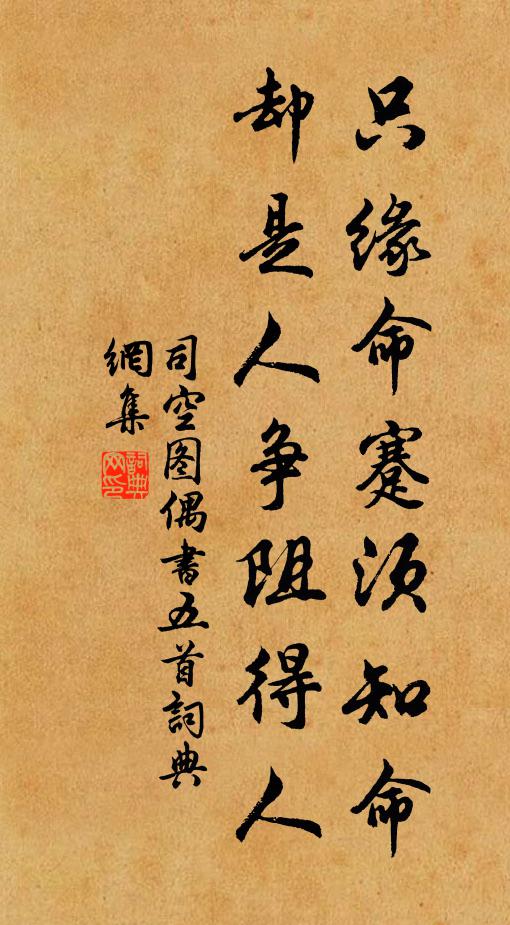 只缘命蹇须知命
却是人争阻得人
司空图偶書五首詞典
網集
詞典
网印